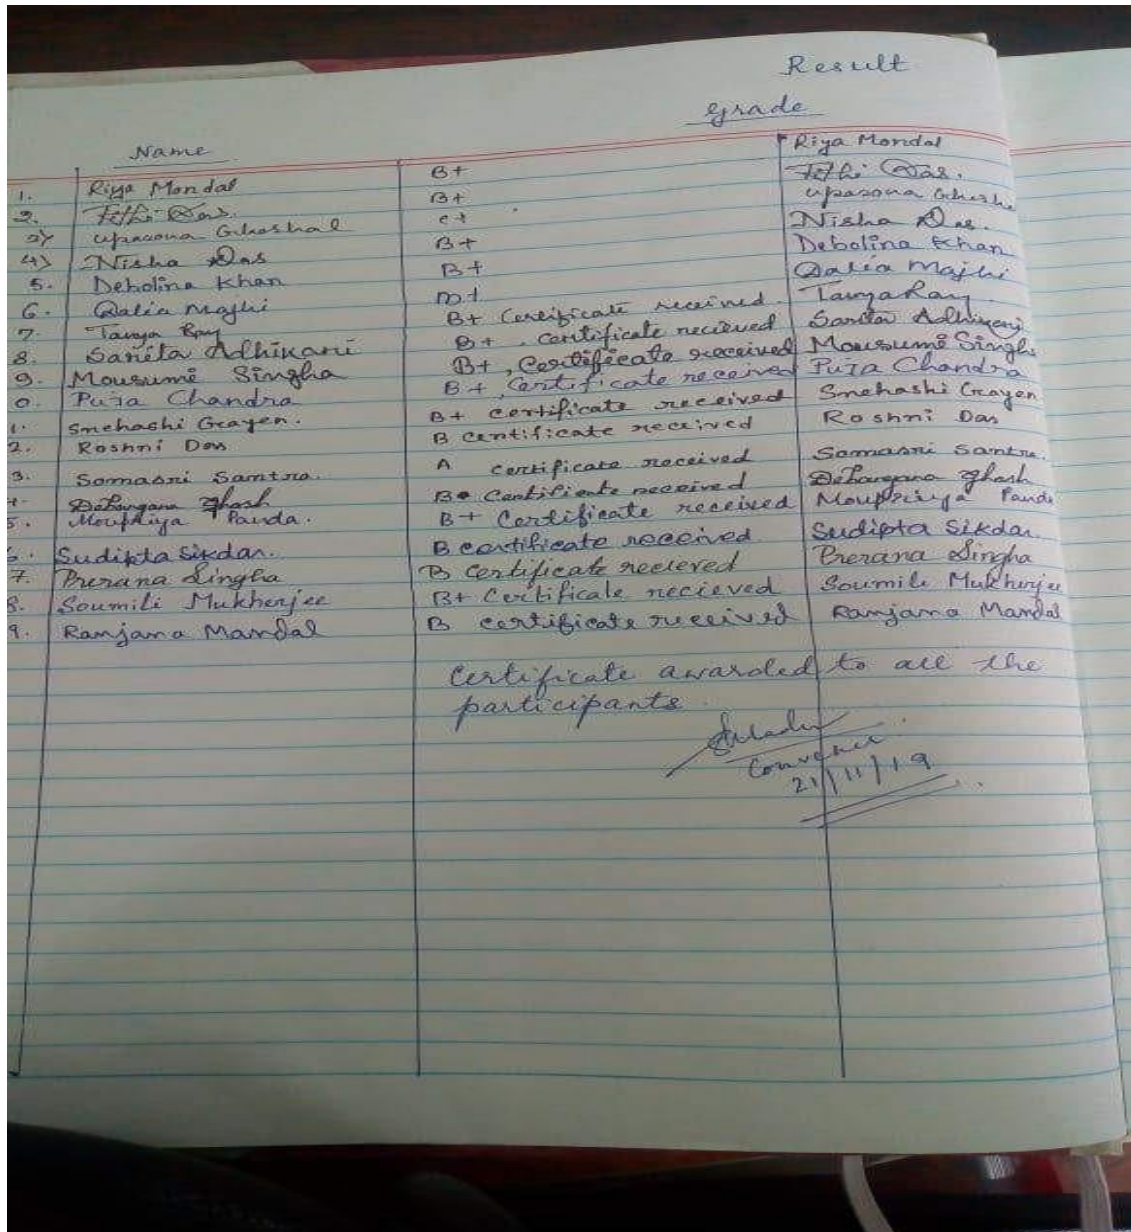 Result
Grade
Name
1. Riya Mondal B+ Riya Mondal
2. Tithi Das. B+ Tithi Das.
3) Upasona Ghoshal C+ Upasona Ghosha
4) Nisha Das B+ Nisha Das.
5. Debolina Khan B+ Debolina Khan
6. Dalia Majhi Dalia Majhi
7. Tanya Ray B+ Certificate received. Tanya Ray
8. Sarita Adhikari B+, certificate recieved Sarita Adhikari
9. Mousumi Singha B+, Certificate received Mousumi Singha
0. Puja Chandra B+, Certificate received Puja Chandra
1. Snehashi Gayen. B+ certificate received Snehashi Gayen
2. Roshni Das B certificate received Roshni Das
3. Somasri Samtra. A certificate received Somasri Santra.
Debangana Ghosh B Certificate received Debangana Ghosh
5. Moupriya Panda. B+ Certificate received Moupriya Panda
6. Sudipta Sikdar. B certificate received Sudipta Sikdar.
7. Prerana Singha B Certificate recieved Prerana Singha
8. Soumili Mukherjee B+ Certificate recieved Soumili Mukherjee
9. Ramjana Mandal B certificate received Ramjana Mandal
Certificate awarded to all the
participants.
Convener
21/11/19